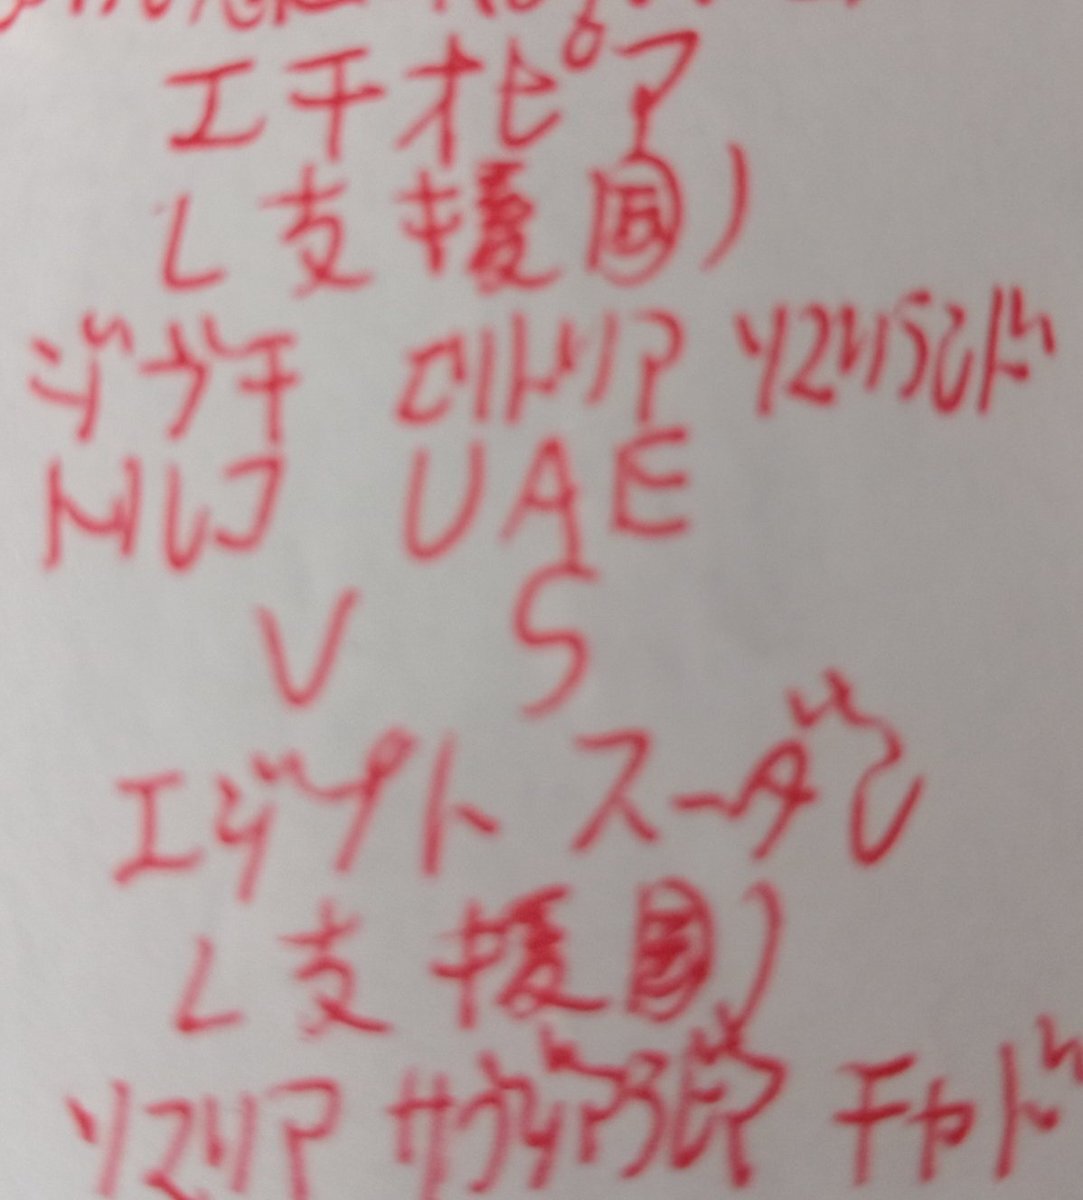 エチオピア
(支援国)
ジブチ エリトリア ソマリランド
トルコ UAE
VS
エジプト スーダン
(支援国)
ソマリア サウジアラビア チャド